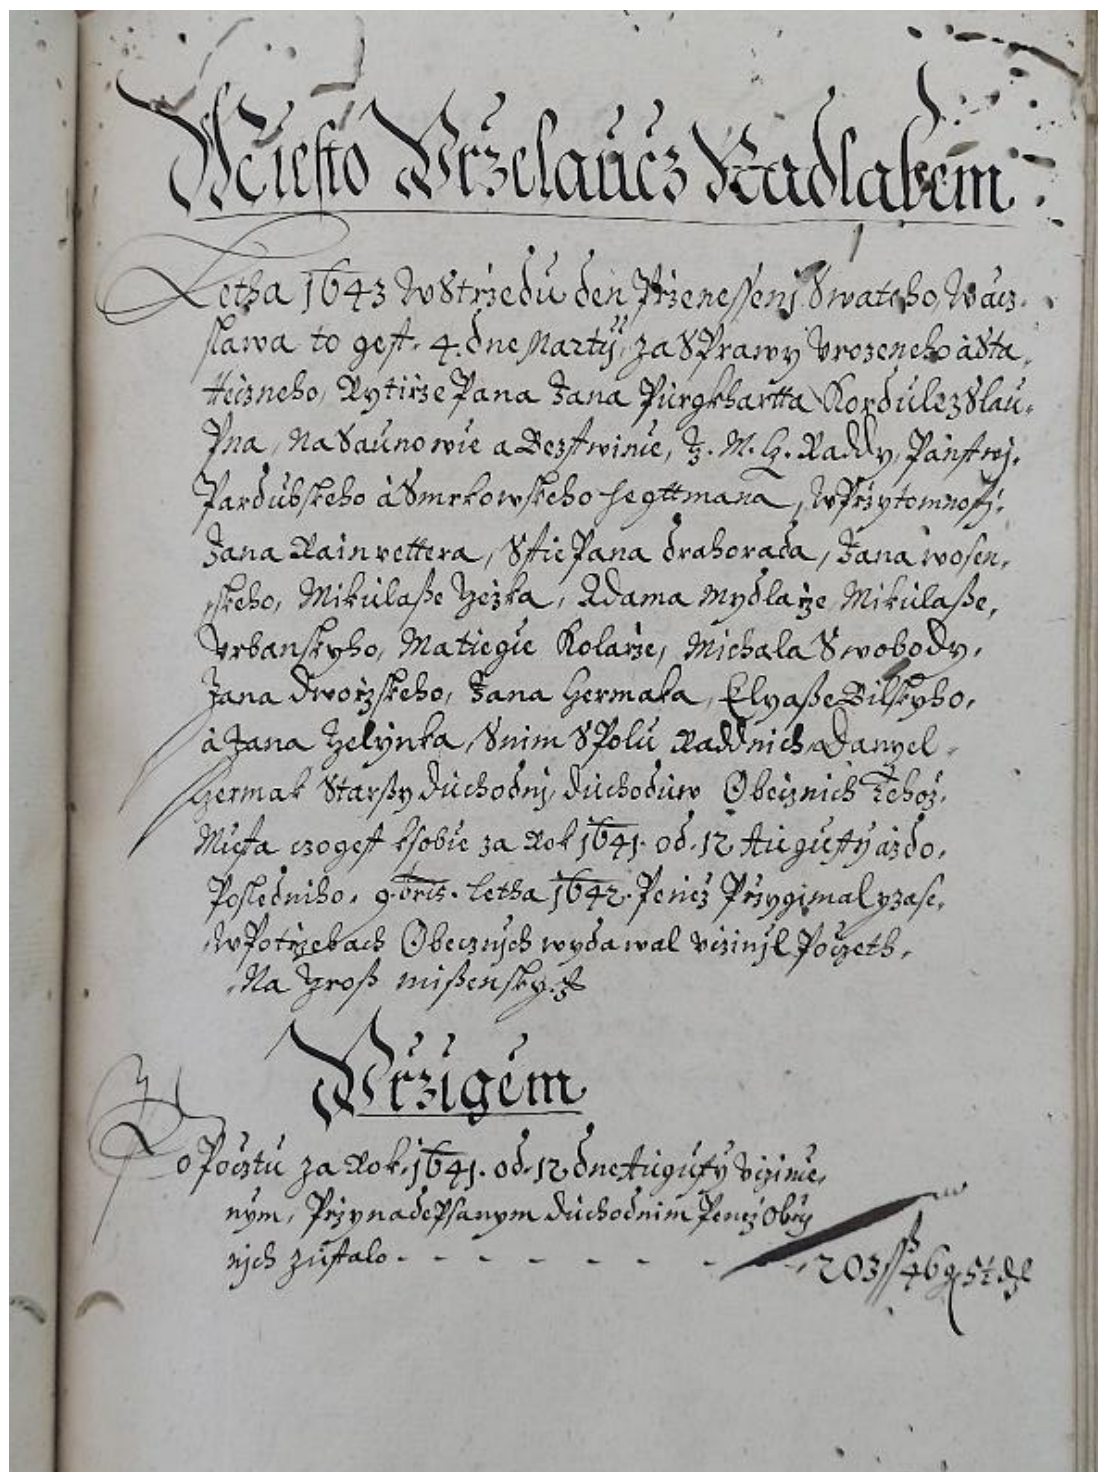 Miesto Przelaucz Nadlabem
Letha 1643 W Strzedu den Przenesseni Swateho Wacz-
slawa to gest. 4. dne Martij, za Sprawy Vrozeneho à Sta-
teczneho, Rytirze Pana Jana Purgkhartta Kordule z Slau-
Pna, na Saunowie a Bezstwinie, J. M. C. Raddy, Panstwj
Pardubskeho à Smrkowskeho hegttmana, W Przytomnosti
Jana Rainvettera, Sstie Pana drahorada, Jana wosen-
skeho, Mikulasse Jezka, Adama Mydlarze Mikulasse
Vrbanskyho, Matiegie Kolarze, Michala Swobody,
Jana dworzskeho, Jana Czermaka, Elyasse Bilskyho,
à Jana Zelynka, S nim Spolu Raddnich Danyel
Czermak Starssy duchodnj duchoduw Obecznich Tehoz
Miesta czo gest k sobie za Rok 1641. od. 12 Augusty až do
Posledniho. 9.bris. Letha 1642. Peniez Przygimal y zase
w Potrzebach Obecznych wydawal vczinjl Poczeth
Na Gross missensky.
Przigem
Po Pocztu za Rok 1641. od. 12 dne Augusty Vczinie-
nym, Przy nadepsanym duchodnim Peniez Obecz
nich zustalo - - - - - - - 203 ss 46 g 5 ½ d